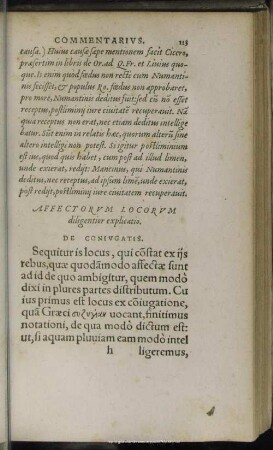 COMMENTARIVS. 113
causa.) Huius causæ sæpe mentionem facit Cicero,
præsertim in libris de Or. ad Q. Fr. et Liuius quo-
que. Is enim quòd fœdus non rectè cum Numanti-
nis fecisset, & populus Ro. fœdus non approbaret,
pro more, Numantinis deditus fuit, sed cũ nõ esset
receptus, postliminij iure ciuitatẽ recuperauit. Nã
qua receptus non erat, nec etiam deditus intellige
batur. Sũt enim in relatis hæc, quorum alterũ sine
altero intelligi non potest. Si igitur postliminium
est ius, quod quis habet, cum post ad illud limen,
unde exierat, redijt: Mancinus, qui Numantinis
deditus, nec receptus, ad ipsum limẽ, unde exierat,
post redijt, postliminij iure ciuitatem recuperauit.
AFFECTORVM LOCORVM
diligentior explicatio.
DE CONIVGATIS.
Sequitur is locus, qui cõstat ex ijs
rebus, quæ quodãmodo affectæ sunt
ad id de quo ambigitur, quem modò
dixi in plures partes distributum. Cu
ius primus est locus ex cõiugatione,
quã Græci συζυγίαν uocant, finitimus
notationi, de qua modò dictum est:
ut, si aquam pluuiam eam modò intel
h ligeremus,